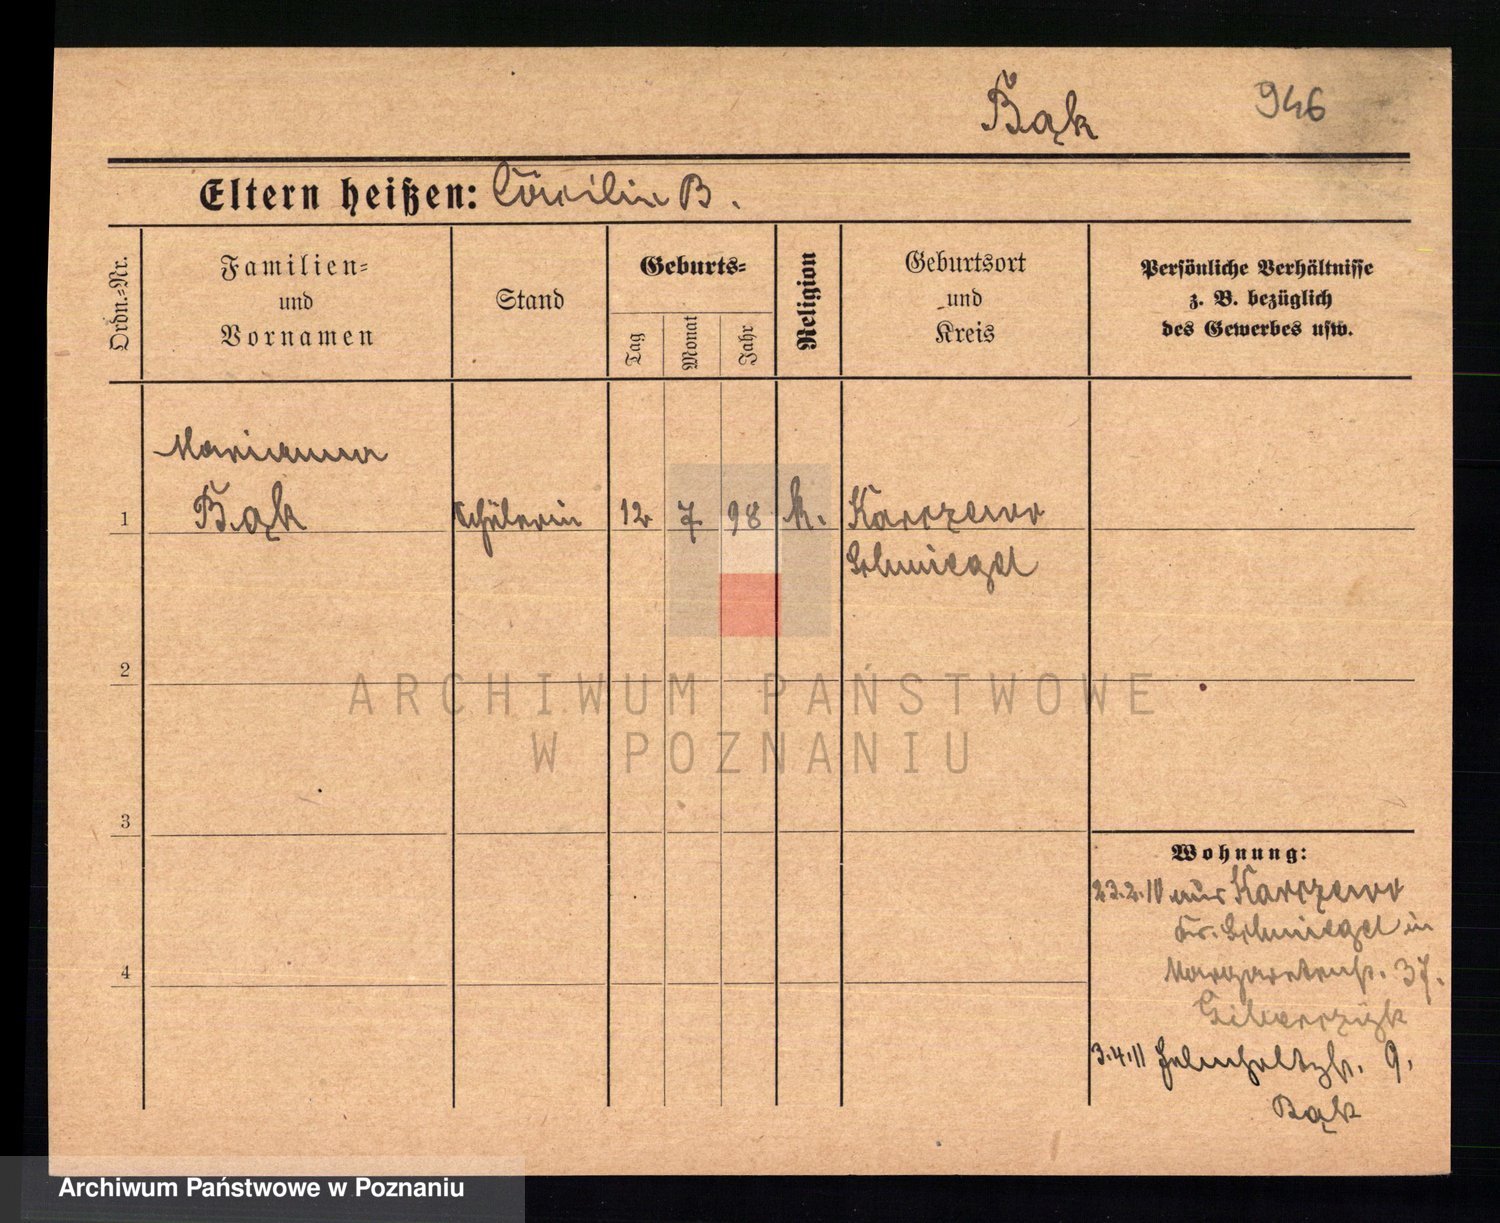 Bąk
946
Eltern heißen: Cäcilie B.
Ordn.-Nr.
Familien-
und
Vornamen
Stand
Geburts-
Tag
Monat
Jahr
Religion
Geburtsort
und
Kreis
Persönliche Verhältnisse
z. B. bezüglich
des Gewerbes usw.
Marianna
1 Bąk Schülerin 12 7 98 k. Karczewo
Schmiegel
2
3
4
Wohnung:
23.2.10 aus Karczewo
Kr. Schmiegel in
Margaretenstr. 37.
3.4.11 Helmholtzstr. 9.
Bąk
ARCHIWUM PAŃSTWOWE
W POZNANIU
Archiwum Państwowe w Poznaniu